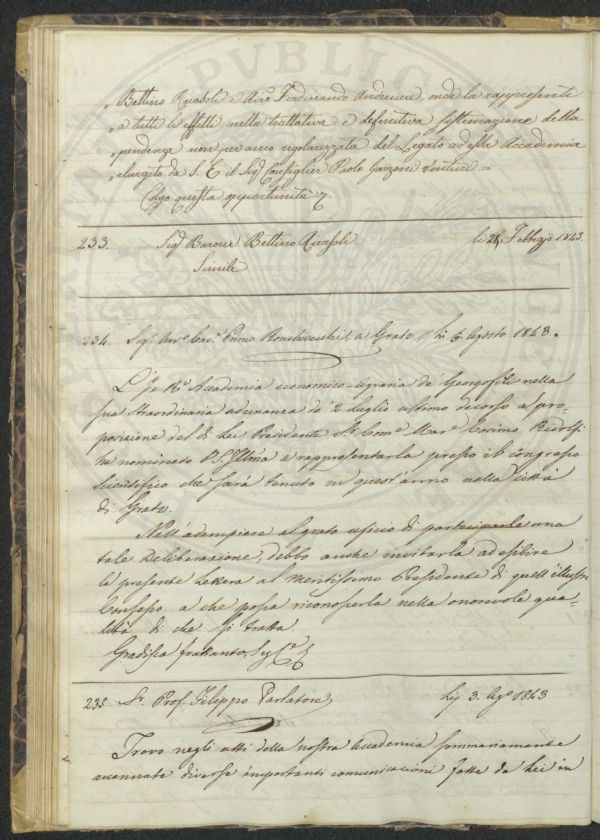 Bettino Ricasoli e Avv.º Ferdinando Andreucci, onde la rappresenti
a tutti li effetti nella trattativa e definitiva sistemazione della
pendenza non per anco regolarizzata del Legato ad essa Accademia
elargito da S. E. il Sig.r Consiglier Paolo Garzoni Venturi =
Colgo questa opportunità
233. Sig.r Barone Bettino Ricasoli li 24 Febbrajo 1843.
Simile
234. Sig. Avv.o Cav.e a Gratz, li 6 Agosto 1843.
L'I. e R.a Accademia economico-agraria de' Georgofili nella
sua straordinaria adunanza de' 2 luglio ultimo decorso a pro-
posizione del di Lei Presidente Sr. Com.e Mar.e Cosimo Ridolfi
ha nominato V. S. Ill.ma a rappresentarla presso il congresso
scientifico che sarà tenuto in quest'anno nella città
di Gratz.
Nell'adempiere al grato uficio di parteciparle una
tale deliberazione, debbo anche invitarla ad esibire
la presente Lettera al meritissimo Presidente di quell'illustre
Consesso a che possa riconoscerla nella onorevole qua-
lità di che si tratta.
Gradisca frattanto
235 Sr. Prof. Filippo Parlatore li 3. Ag.o 1843
Trovo negli atti della nostra Accademia sommariamente
accennate diverse importanti comunicazioni fatte da Lei in
PVBLIC